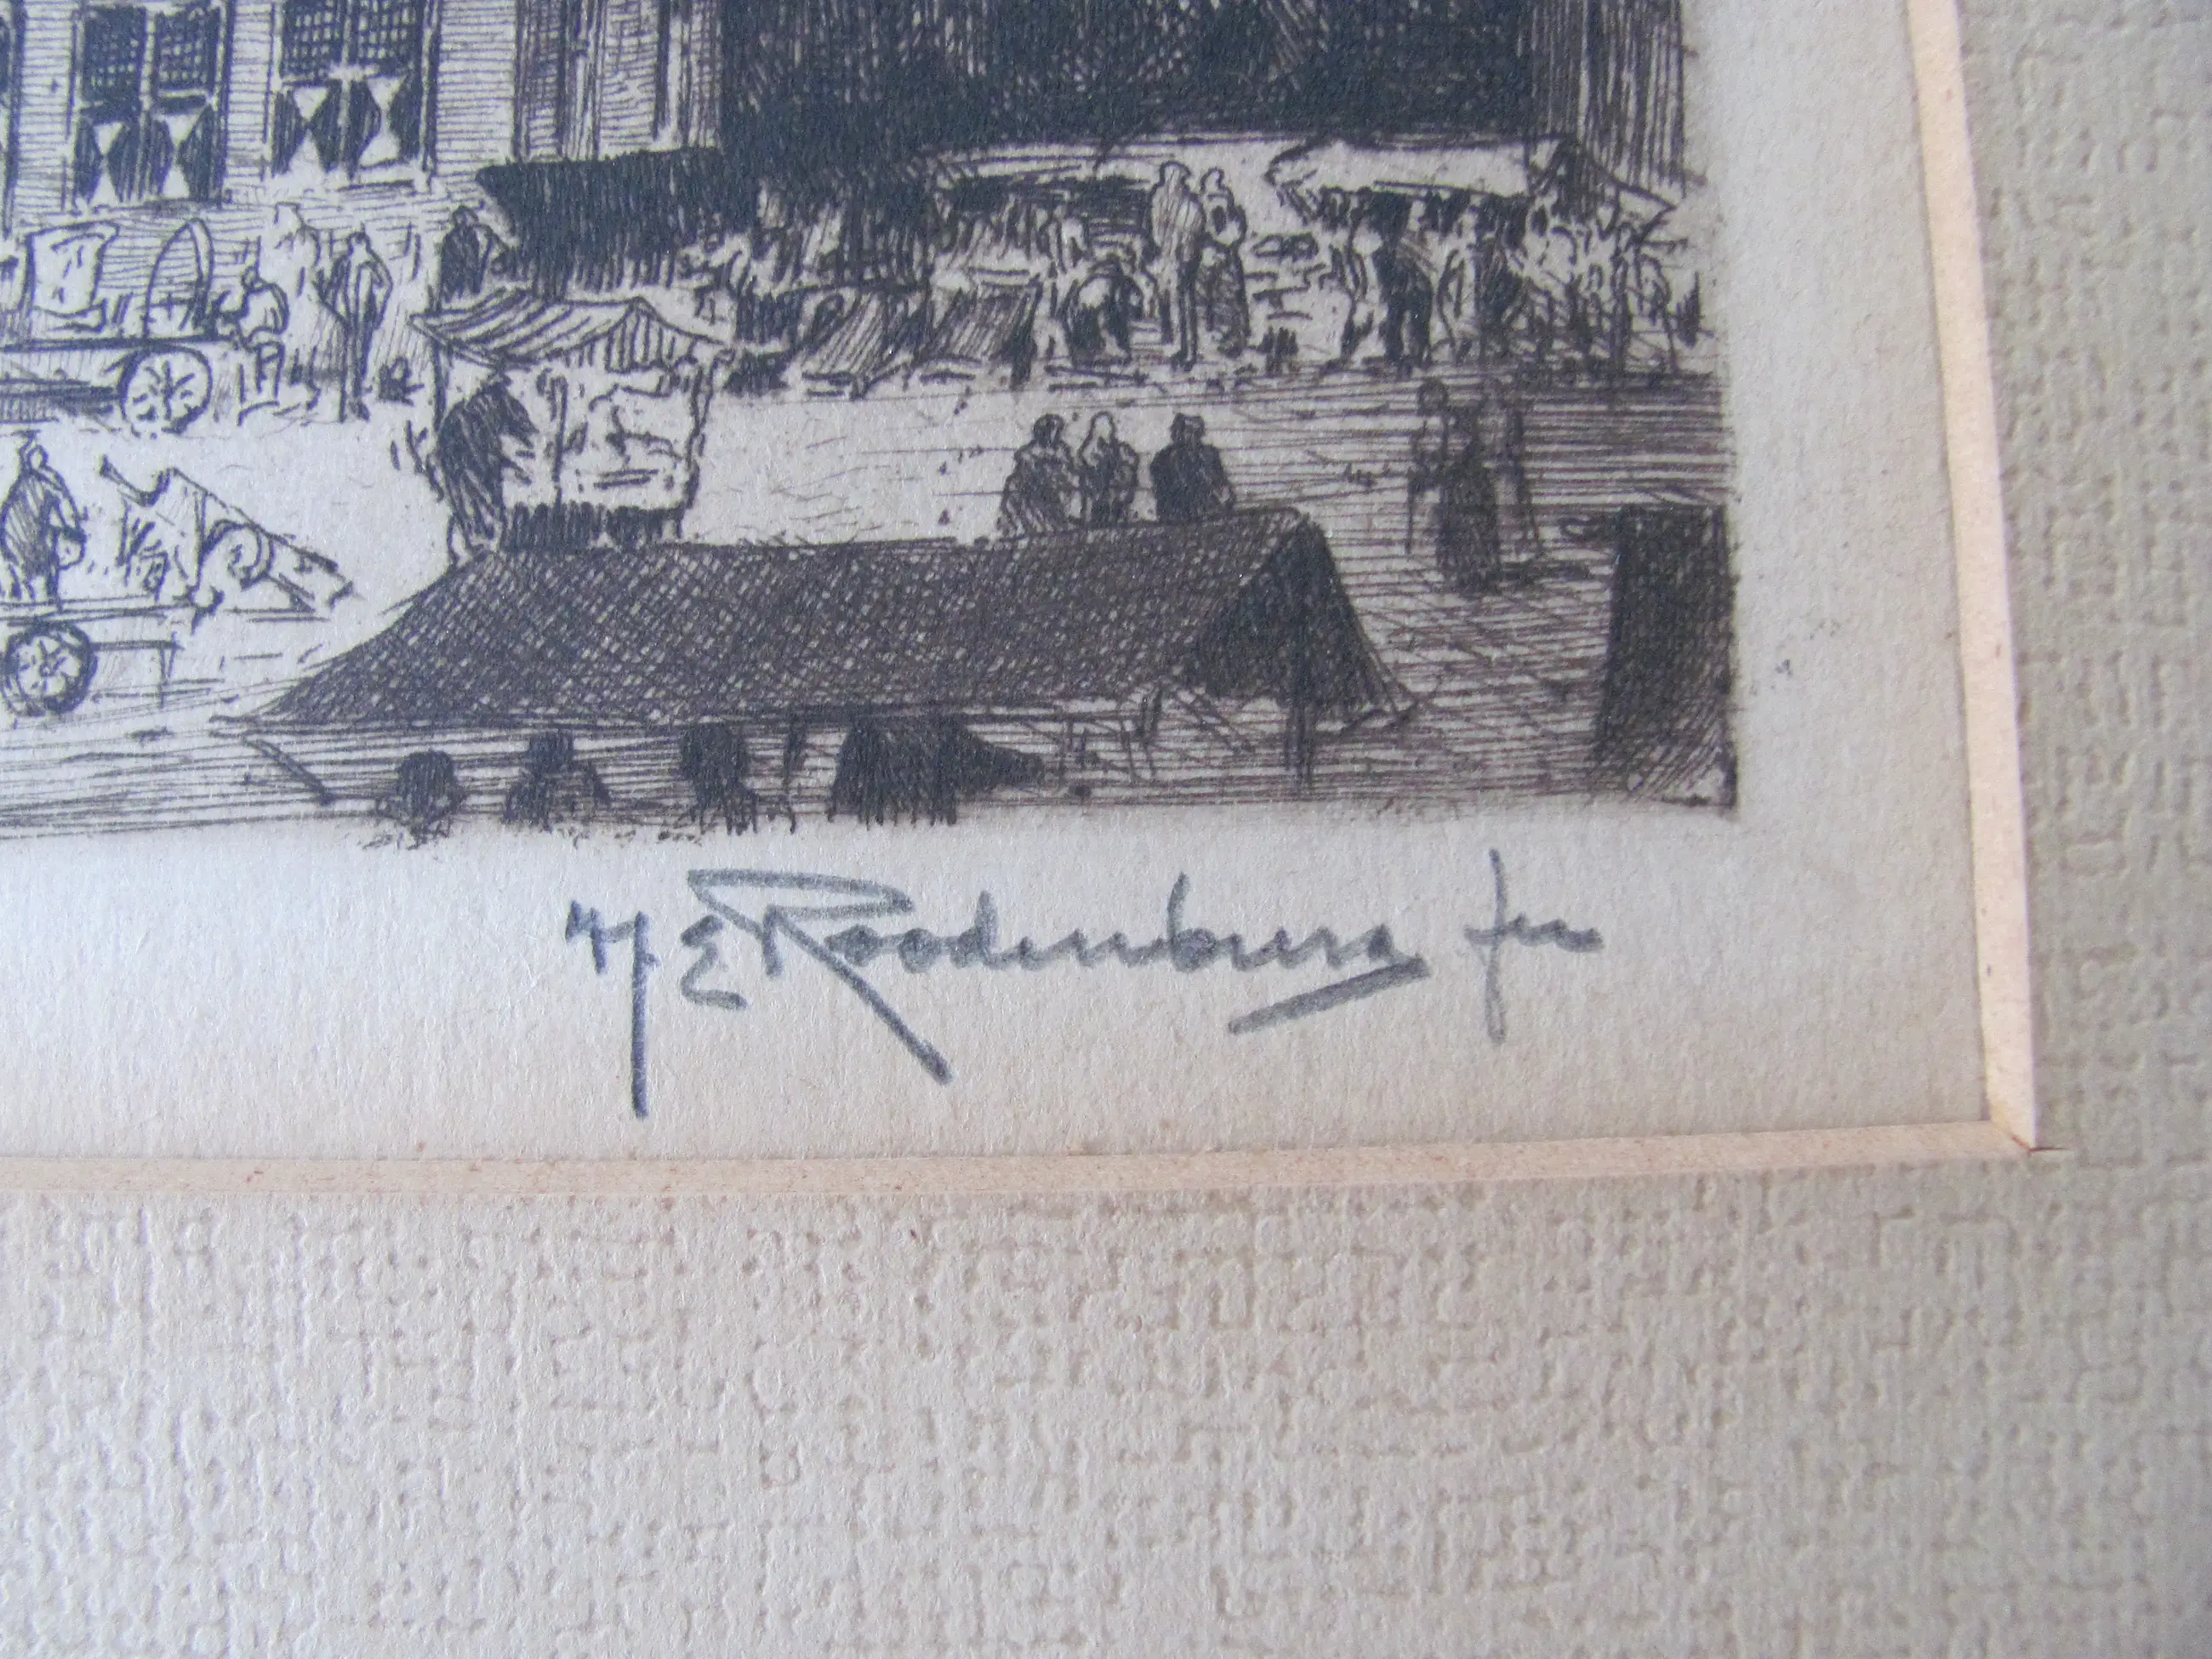 H E Roodenburg fec